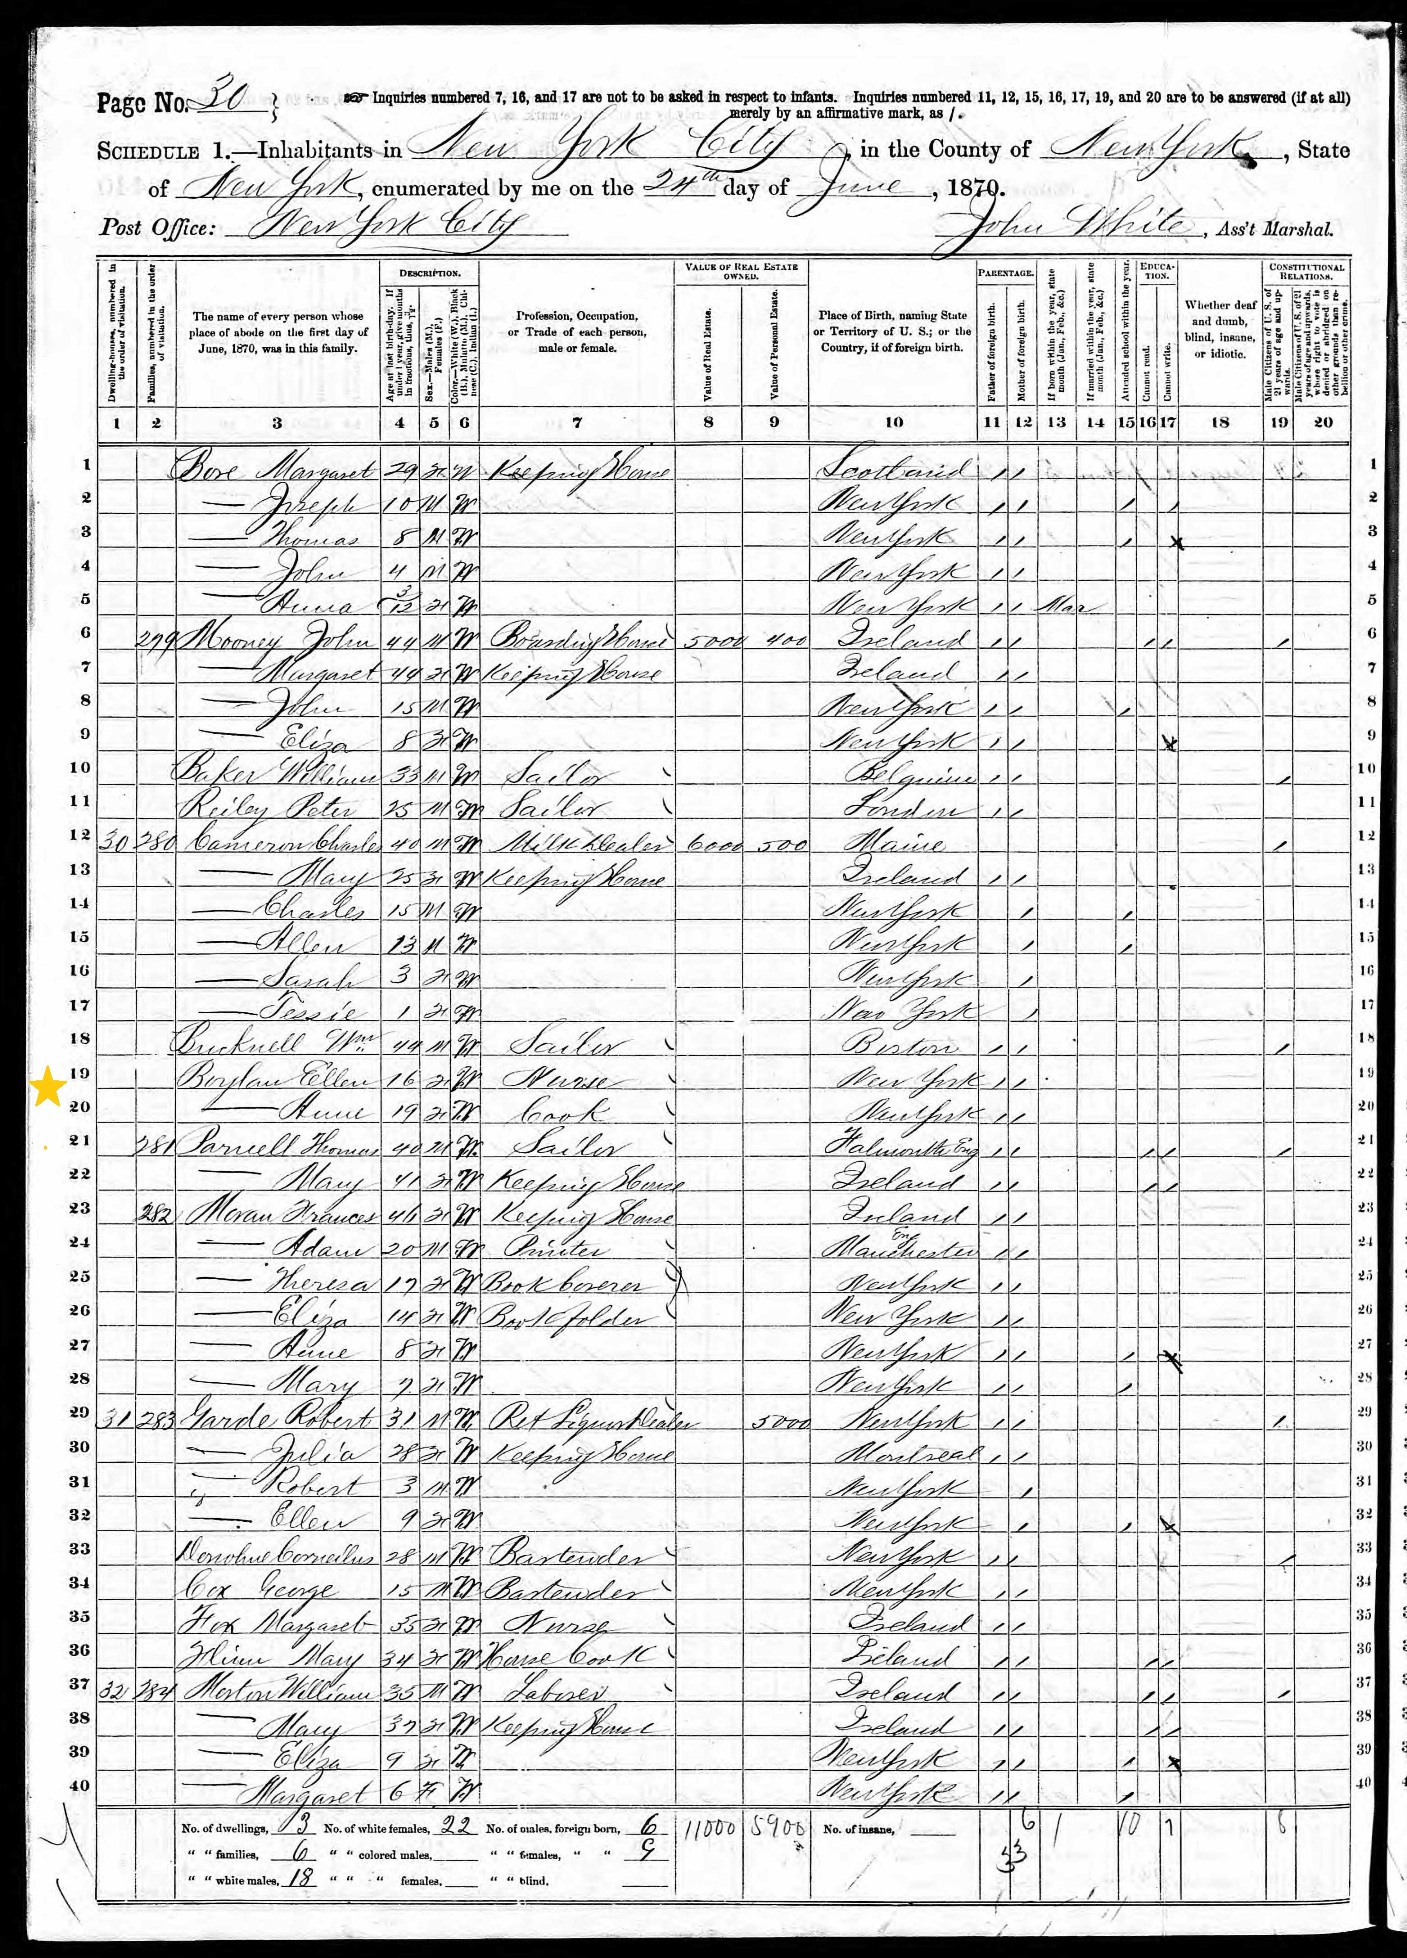 Page No. 30 } Inquiries numbered 7, 16, and 17 are not to be asked in respect to infants. Inquiries numbered 11, 12, 15, 16, 17, 19, and 20 are to be answered (if at all)
merely by an affirmative mark, as /.
SCHEDULE 1.—Inhabitants in New York City, in the County of New York, State
of New York, enumerated by me on the 24th day of June, 1870.
Post Office: New York City John White, Ass't Marshal.
Dwelling-houses, numbered in the order of visitation.
Families, numbered in the order of visitation.
The name of every person whose place of abode on the first day of June, 1870, was in this family.
DESCRIPTION.
Age at last birth-day. If under 1 year, give months in fractions, thus, 3/12.
Sex.—Males (M.), Females (F.)
Color.—White (W.), Black (B.), Mulatto (M.), Chinese (C.), Indian (I.)
Profession, Occupation, or Trade of each person, male or female.
VALUE OF REAL ESTATE OWNED.
Value of Real Estate.
Value of Personal Estate.
Place of Birth, naming State or Territory of U. S.; or the Country, if of foreign birth.
PARENTAGE.
Father of foreign birth.
Mother of foreign birth.
If born within the year, state month (Jan., Feb., &c.)
If married within the year, state month (Jan., Feb., &c.)
Attended school within the year.
EDUCATION.
Cannot read.
Cannot write.
Whether deaf and dumb, blind, insane, or idiotic.
CONSTITUTIONAL RELATIONS.
Male Citizens of U. S. of 21 years of age and upwards.
Male Citizens of U. S. of 21 years of age and upwards, whose right to vote is denied or abridged on other grounds than rebellion or other crime.
1 2 3 4 5 6 7 8 9 10 11 12 13 14 15 16 17 18 19 20
1 Bore Margaret 29 F W Keeping House Scotland / / 1
2 — Joseph 10 M W New York / / / / 2
3 — Thomas 8 M W New York / / / x 3
4 — John 4 M W New York / / 4
5 — Anna 3/12 F W New York / / Mar 5
6 279 Mooney John 44 M W Boarding House 5000 400 Ireland / / / / / 6
7 — Margaret 44 F W Keeping House Ireland / / 7
8 — John 15 M W New York / / / 8
9 — Eliza 8 F W New York / / x 9
10 Baker William 33 M W Sailor Belguim / / / 10
11 Reiley Peter 25 M W Sailor London / / 11
12 30 280 Cameron Charles 40 M W Milk Dealer 6000 500 Maine / 12
13 — Mary 25 F W Keeping House Ireland / / 13
14 — Charles 15 M W New York / / 14
15 — Allen 13 M W New York / / 15
16 — Sarah 3 F W New York / 16
17 — Tessie 1 F W New York / 17
18 Bucknell Wm 44 M W Sailor Boston / / / 18
19 Boylan Ellen 16 F W Nurse New York / / 19
20 — Anne 19 F W Cook New York / / 20
21 281 Parnell Thomas 40 M W Sailor Falmouth Eng / / / / / 21
22 — Mary 41 F W Keeping House Ireland / / / / 22
23 282 Moran Frances 46 F W Keeping House Ireland / / 23
24 — Adam 20 M W Printer Manchester Eng / / 24
25 — Theresa 17 F W Book Coverer New York / / 25
26 — Eliza 14 F W Book folder New York / / 26
27 — Anne 8 F W New York / / / x 27
28 — Mary 7 F W New York / / / 28
29 31 283 Garde Robert 31 M W Ret Liquor Dealer 5000 New York / / / 29
30 — Julia 28 F W Keeping House Montreal / / 30
31 — Robert 3 M W New York / 31
32 — Ellen 9 F W New York / / x 32
33 Donohue Corneilus 28 M W Bartender New York / / / 33
34 Cox George 15 M W Bartender New York / / 34
35 Fox Margaret 35 F W Nurse Ireland / / 35
36 Flinn Mary 34 F W House Cook Ireland / / / / 36
37 32 284 Morton William 35 M W Laborer Ireland / / / / / 37
38 — Mary 37 F W Keeping House Ireland / / / / 38
39 — Eliza 9 F W New York / / / x 39
40 — Margaret 6 F W New York / / / 40
No. of dwellings, 3 No. of white females, 22 No. of males, foreign born, 6 11000 5900 No. of insane, 6 1 10 7 8
" " families, 6 " " colored males, " " females, " " 9 33
" " white males, 18 " " " females, " " blind.